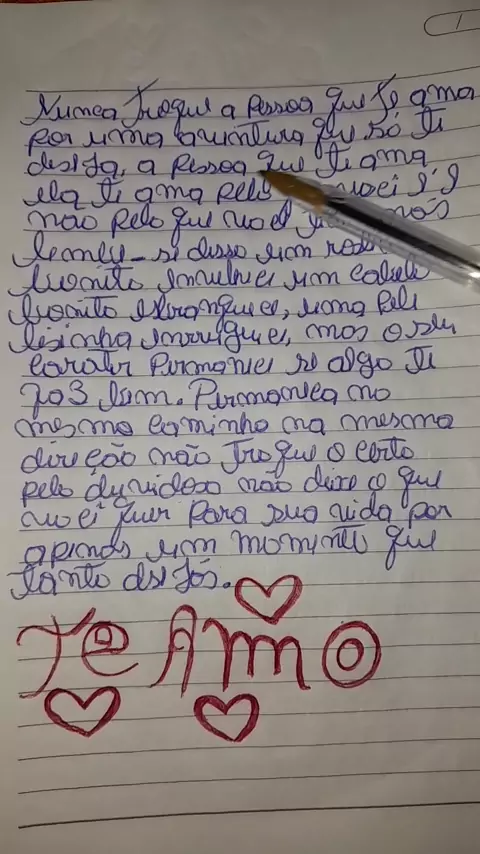 1
Nunca Troque a Pessoa que Te ama
por uma aventura que só Te
deseja, a pessoa que Te ama
ela Ti ama pelo voci é
não pelo que voce
lembre-si disso um
bonito invelhece um cabelo
bonito esbranquece, uma pele
lisinha inrrugue, mas o seu
carater Permanece se algo Te
faz bem. Permaneca no
mesmo caminho na mesma
direção não Troque o certo
pelo duvidoso não dixe o que
voci quer Para sua vida por
apenas um momento que
tanto desejós.
Te Amo